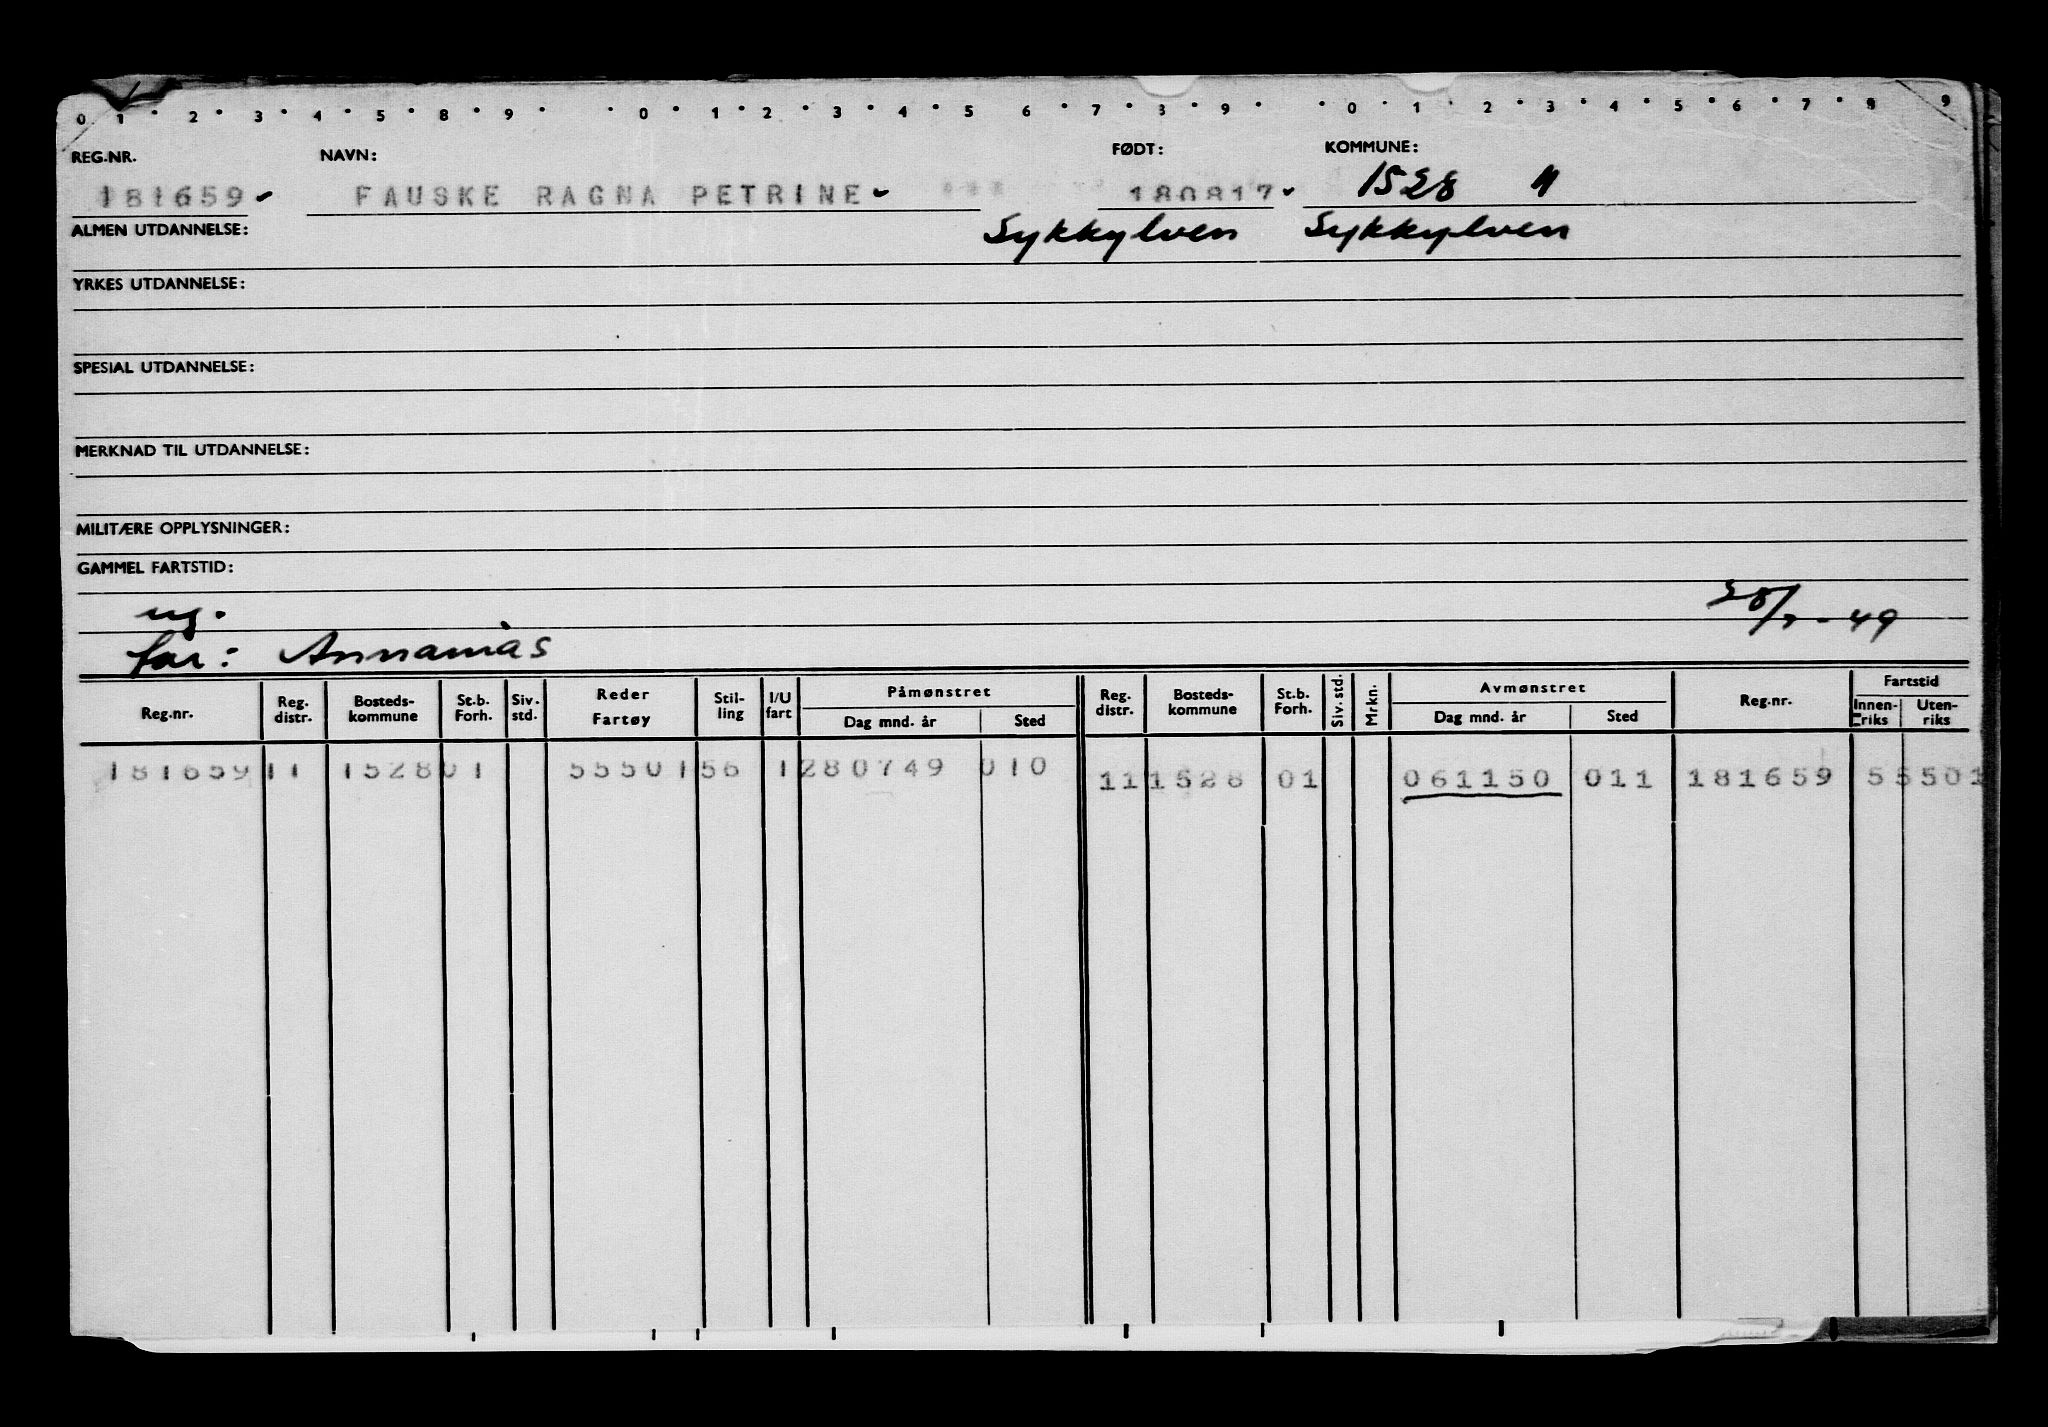 0 1 2 3 4 5 6 8 9 0 1 2 3 4 5 6 7 8 9 0 1 2 3 4 5 6 7 8 9
REG.NR. NAVN: FØDT: KOMMUNE:
181659 FAUSKE RAGNA PETRINE 180817 1528
ALMEN UTDANNELSE: Sykkylven Sykkylven
YRKES UTDANNELSE:
SPESIAL UTDANNELSE:
MERKNAD TIL UTDANNELSE:
MILITÆRE OPPLYSNINGER:
GAMMEL FARTSTID:
ug.
far: Annanias
Reg.nr. Reg. distr. Bosteds-kommune St.b. Forh. Siv. std. Reder Fartøy Stil-ling I/U fart Påmønstret Dag mnd. år Sted Reg. distr. Bosteds-kommune St.b. Forh. Siv. std. Mrkn. Avmønstret Dag mnd. år Sted Reg.nr. Fartstid Innen-riks Uten-riks
181659 11 1528 01 55501 56 1 280749 010 11 1528 01 061150 011 181659 55501